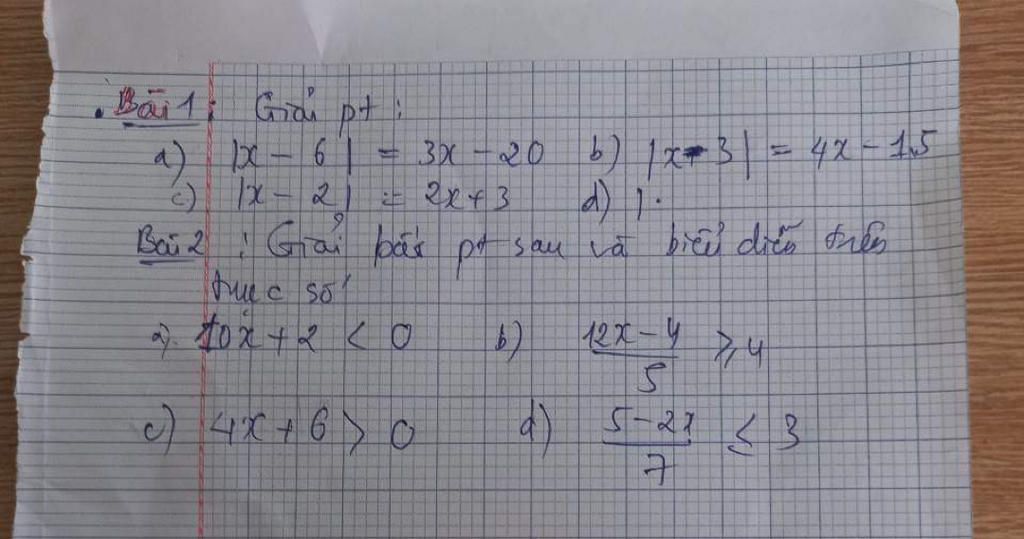 Bài 1 : Giải pt :
a) |x - 6| = 3x - 20 b) |x - 3| = 4x - 15
c) |x - 2| = 2x + 3 d) |.
Bài 2 : Giải bất pt sau và biểu diễn trên
trục số
a) 10x + 2 < 0 b) (12x - 4)/5 ≥ 4
c) 4x + 6 > 0 d) (5 - 2x)/7 ≤ 3